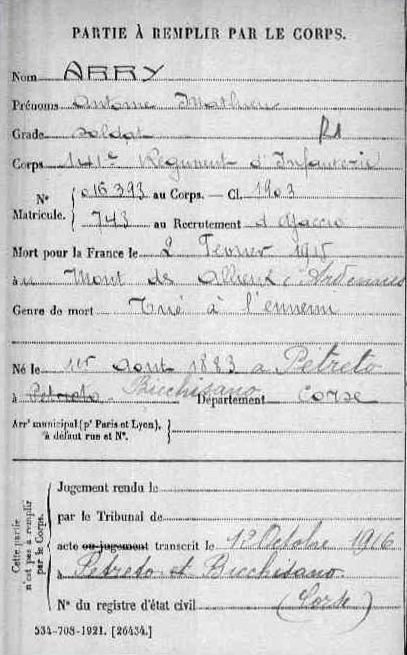 PARTIE À REMPLIR PAR LE CORPS.
Nom ARRY
Prénoms Antoine Mathieu
Grade Soldat
Corps 141e Régiment d'Infanterie
N° Matricule. { 016393 au Corps. — Cl. 1903
743 au Recrutement d'Ajaccio
Mort pour la France le 2 Février 1915
à Mont de Ardennes
Genre de mort Tué à l'ennemi
Né le 1er Août 1883 à Petreto
à Petreto Bicchisano Département Corse
Arr' municipal (p' Paris et Lyon), à défaut rue et N°. }
Cette partie n'est pas à remplir par le Corps.
Jugement rendu le
par le Tribunal de
acte ou jugement transcrit le 12 Octobre 1916
à Petreto et Bicchisano.
N° du registre d'état civil (Corse)
534-708-1921. [26434.]